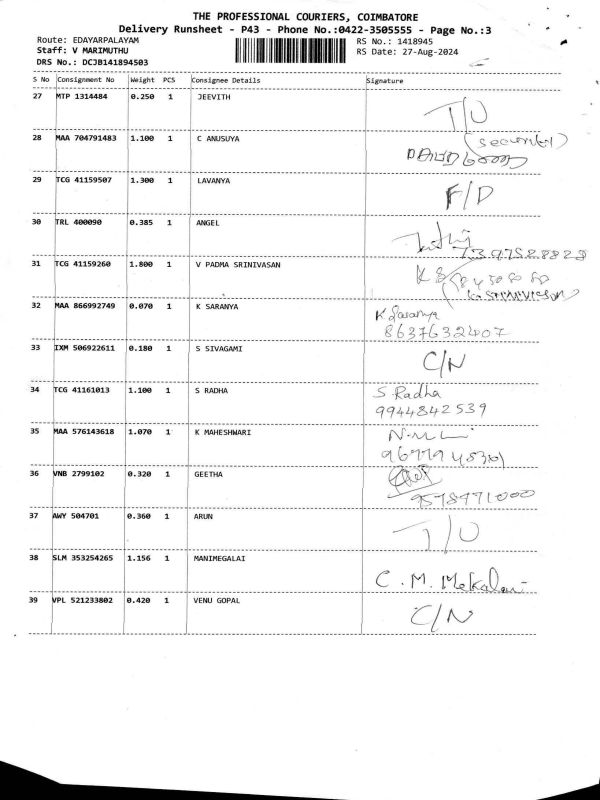 THE PROFESSIONAL COURIERS, COIMBATORE
Delivery Runsheet - P43 - Phone No.:0422-3505555 - Page No.:3
Route: EDAYARPALAYAM RS No.: 1418945
Staff: V MARIMUTHU RS Date: 27-Aug-2024
DRS No.: DCJB141894503
S No Consignment No Weight PCS Consignee Details Signature
27 MTP 1314484 0.250 1 JEEVITH
T/U
28 MAA 704791483 1.100 1 C ANUSUYA
(security)
29 TCG 41159507 1.300 1 LAVANYA
F/D
30 TRL 400090 0.385 1 ANGEL
7397528828
31 TCG 41159260 1.800 1 V PADMA SRINIVASAN
32 MAA 866992749 0.070 1 K SARANYA
K Saranya
8637632407
33 IXM 506922611 0.180 1 S SIVAGAMI
C/N
34 TCG 41161013 1.100 1 S RADHA
S Radha
9944842539
35 MAA 576143618 1.070 1 K MAHESHWARI
36 VNB 2799102 0.320 1 GEETHA
9578971000
37 AWY 504701 0.360 1 ARUN
T/U
38 SLM 353254265 1.156 1 MANIMEGALAI
C. M. Mekalai
39 VPL 521233802 0.420 1 VENU GOPAL
C/N